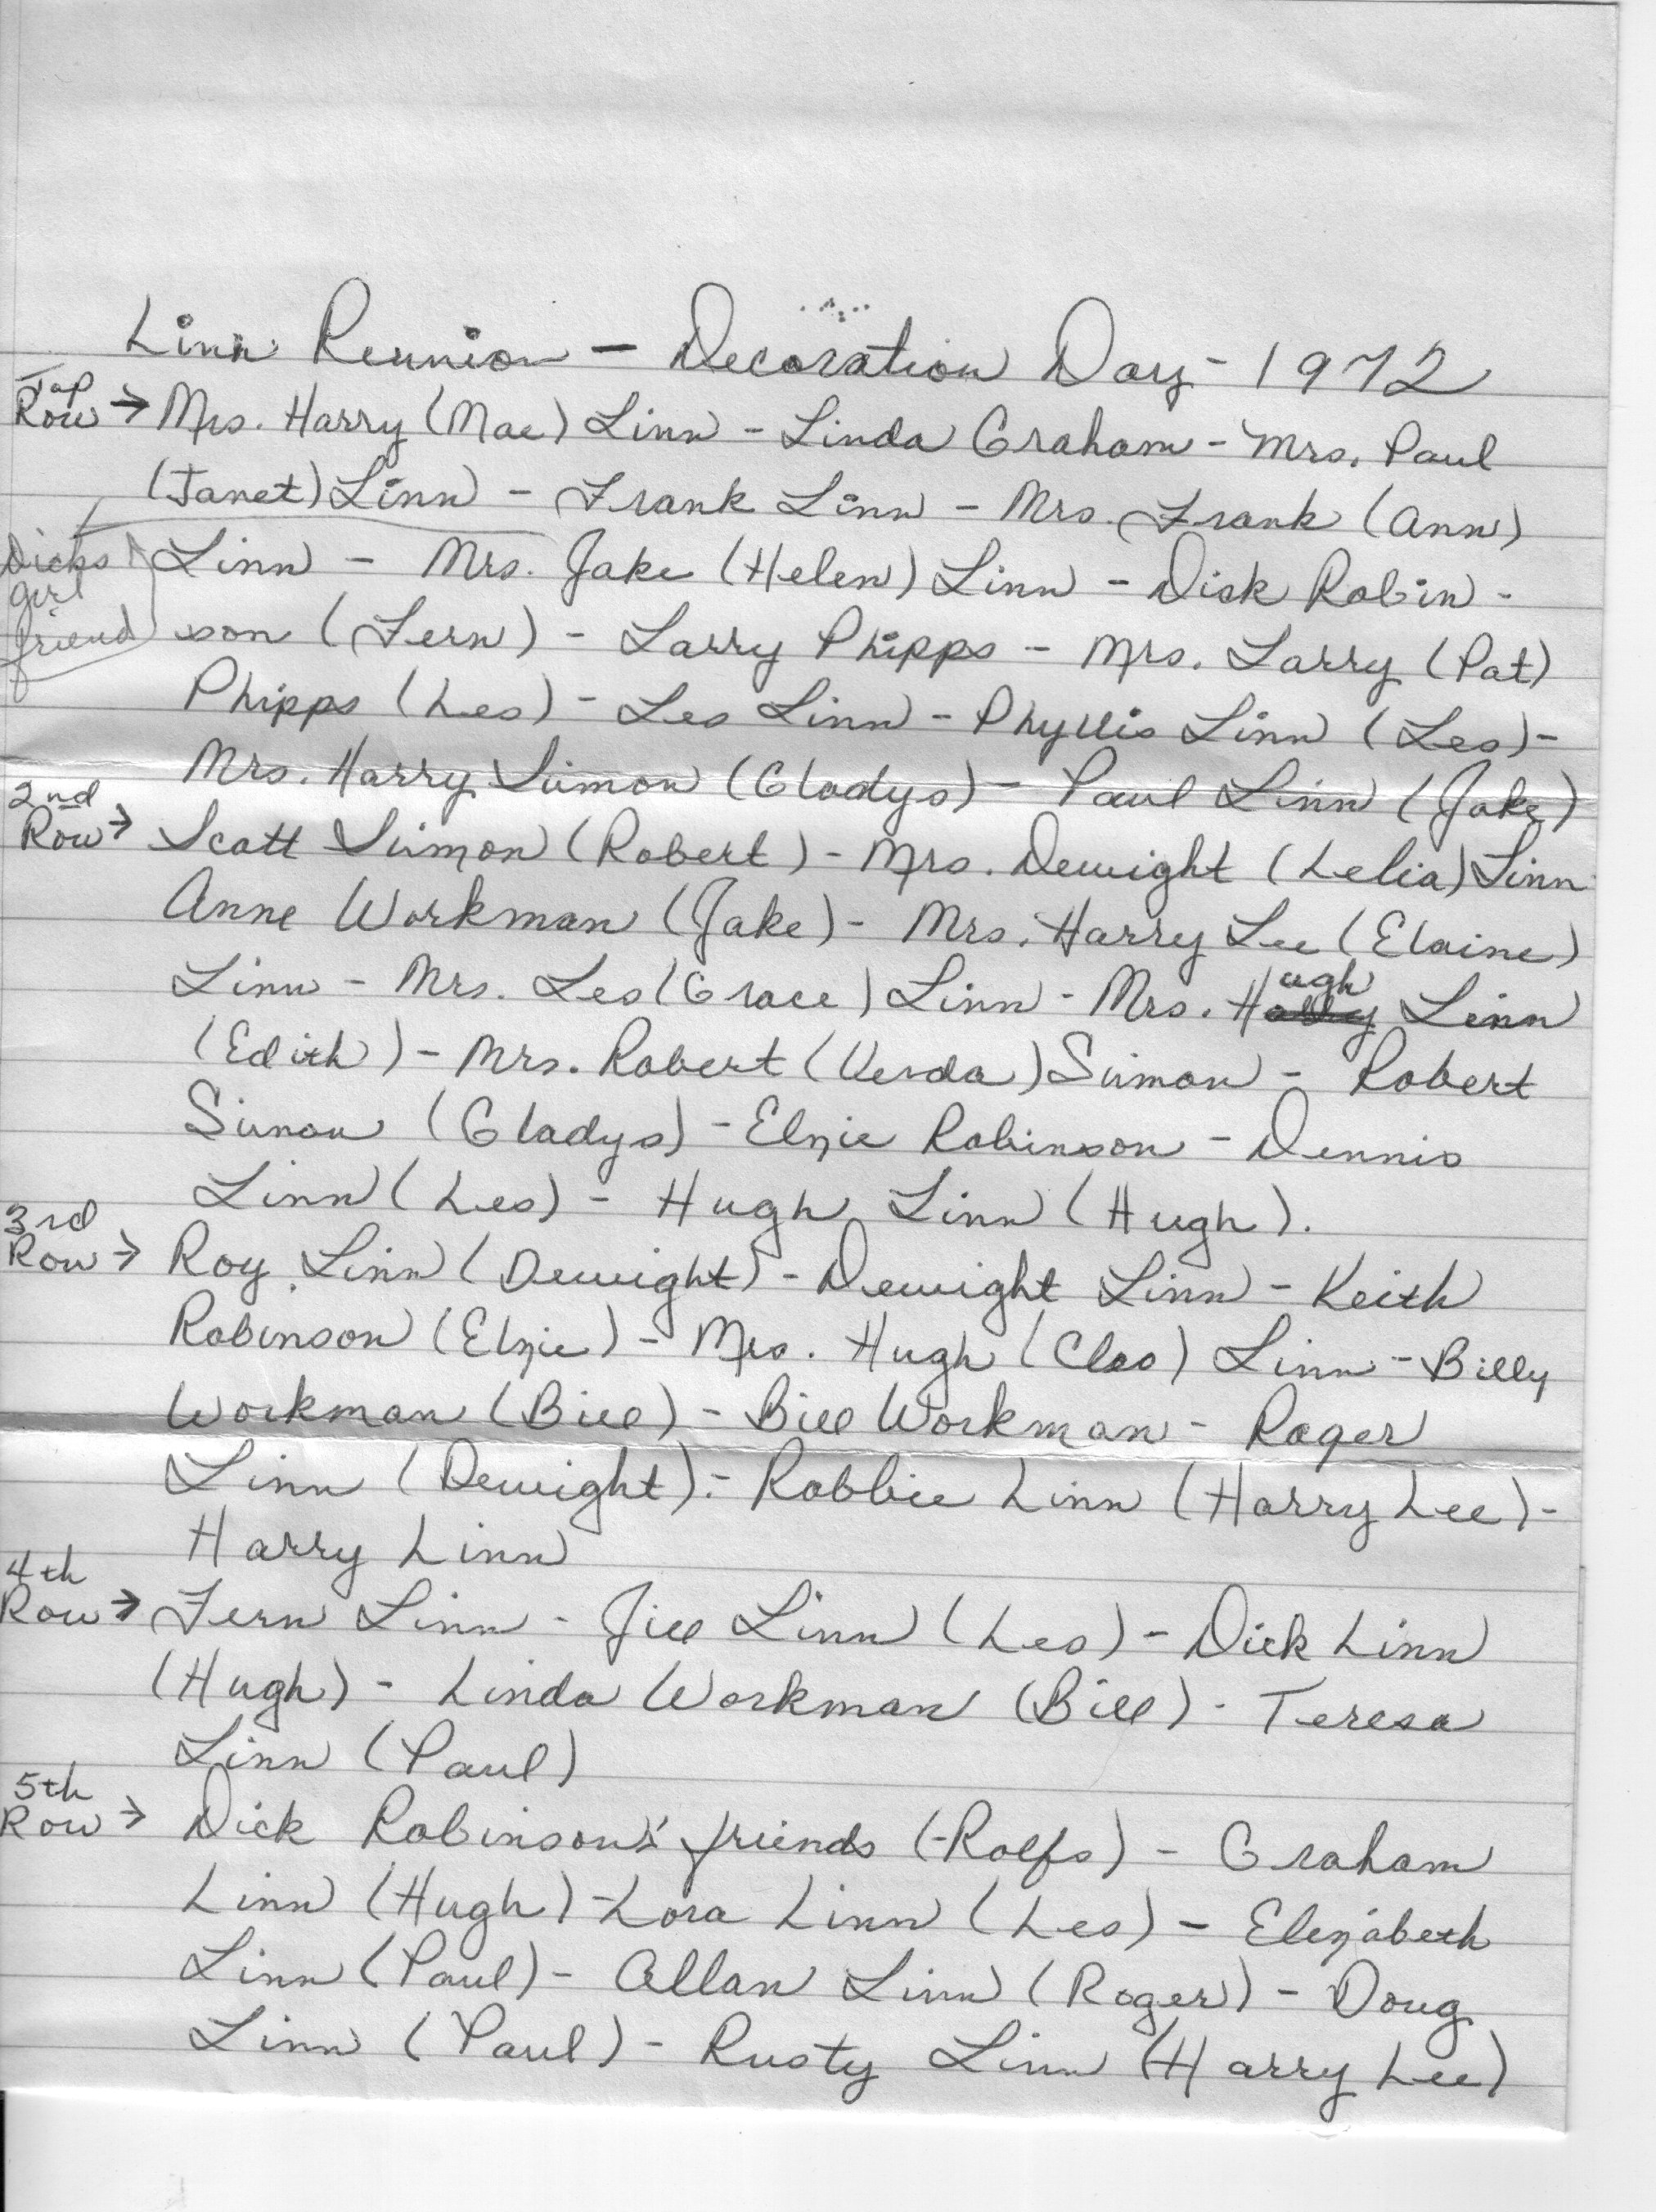 Linn Reunion - Decoration Day - 1972
Top
Row → Mrs. Harry (Mae) Linn - Linda Graham - Mrs. Paul
(Janet) Linn - Frank Linn - Mrs. Frank (Ann)
Dicks girl friend
Linn - Mrs. Jake (Helen) Linn - Dick Robin-
son (Fern) - Larry Phipps - Mrs. Larry (Pat)
Phipps (Les) - Les Linn - Phyllis Linn (Les) -
Mrs. Harry Simon (Gladys) - Paul Linn (Jake)
2nd
Row → Scott Simon (Robert) - Mrs. Dewight (Lelia) Linn
Anne Workman (Jake) - Mrs. Harry Lee (Elaine)
Linn - Mrs. Les (Grace) Linn - Mrs. Hugh Linn
(Edith) - Mrs. Robert (Verda) Simon - Robert
Simon (Gladys) - Elzie Robinson - Dennis
Linn (Les) - Hugh Linn (Hugh).
3rd
Row → Roy Linn (Dewight) - Dewight Linn - Keith
Robinson (Elzie) - Mrs. Hugh (Cleo) Linn - Billy
Workman (Bill) - Bill Workman - Roger
Linn (Dewight). - Robbie Linn (Harry Lee) -
Harry Linn
4th
Row → Fern Linn - Jill Linn (Les) - Dick Linn
(Hugh) - Linda Workman (Bill) - Teresa
Linn (Paul)
5th
Row → Dick Robinson's friends (Rolfs) - Graham
Linn (Hugh) - Lora Linn (Les) - Elezabeth
Linn (Paul) - Allan Linn (Roger) - Doug
Linn (Paul) - Rusty Linn (Harry Lee)